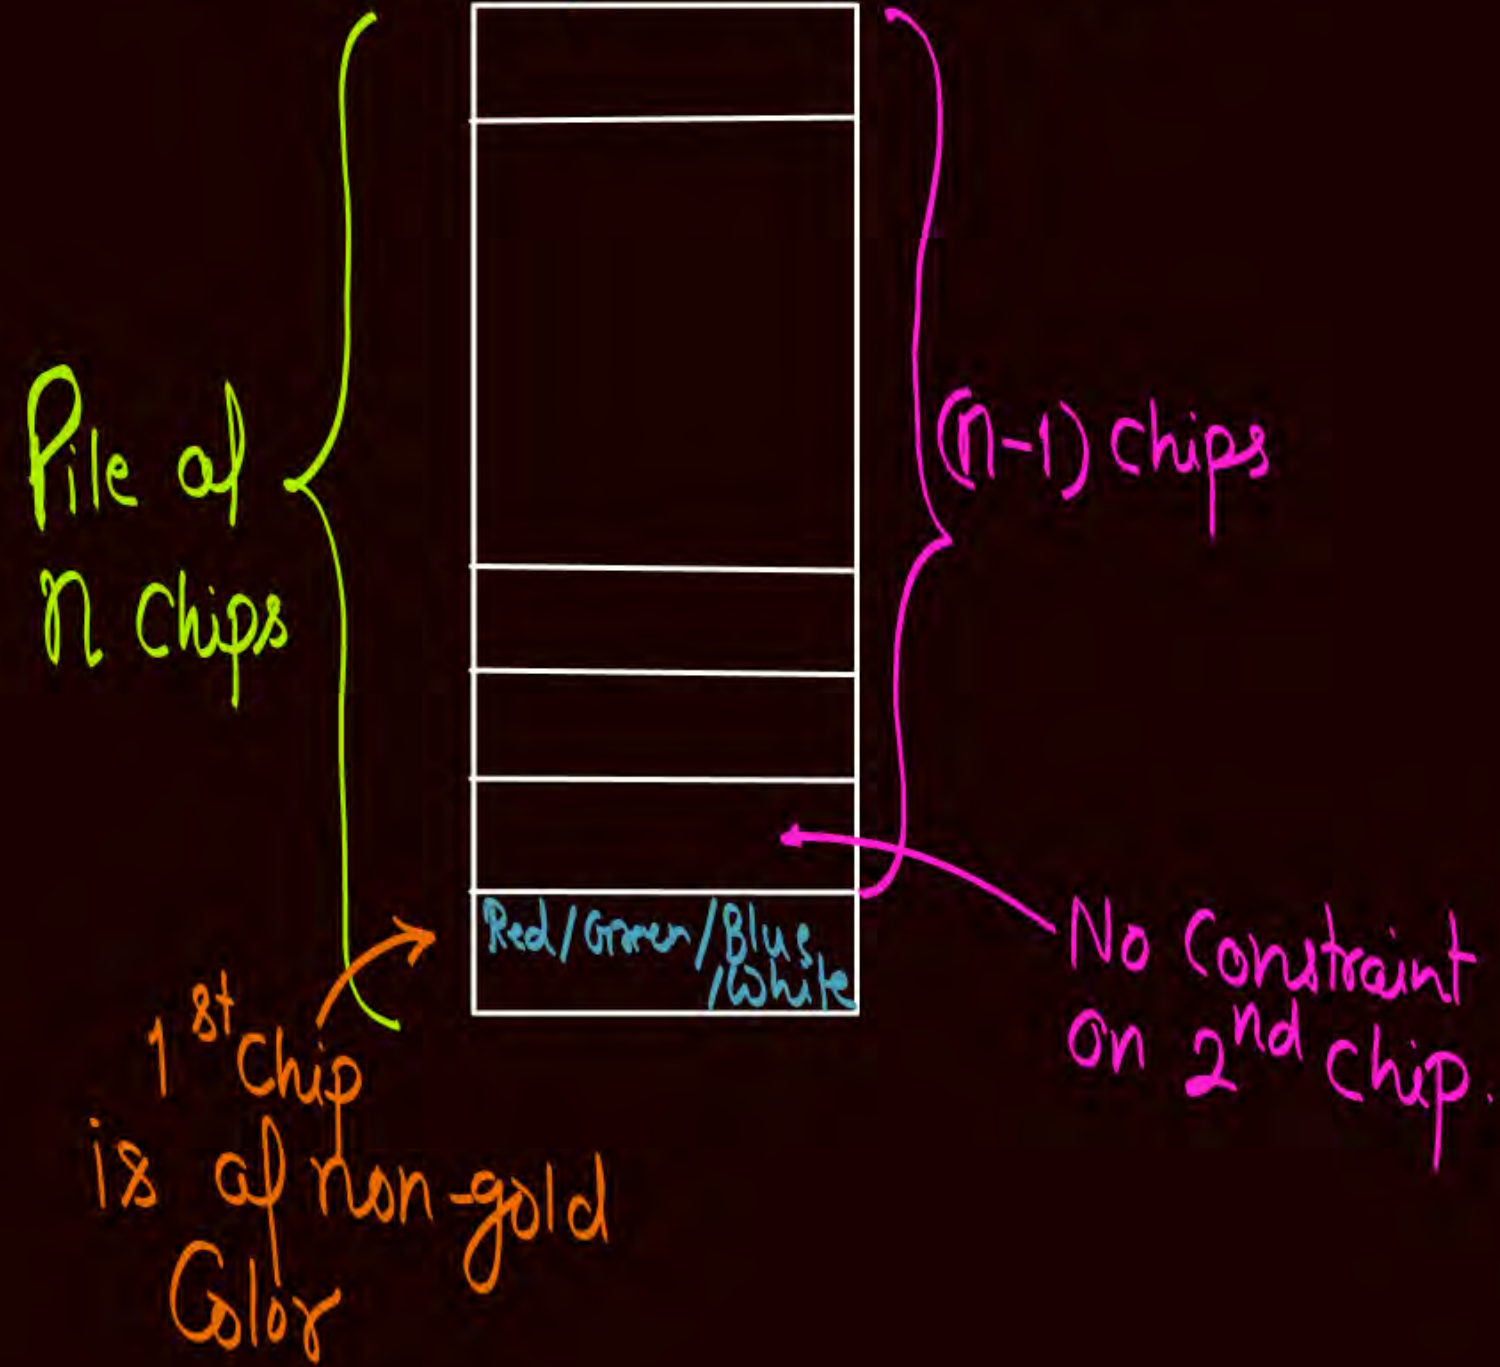 Pile of
n chips
(n-1) chips
Red/Green/Blue
/White
No Constraint
on 2nd chip.
1st chip
is of non-gold
Color